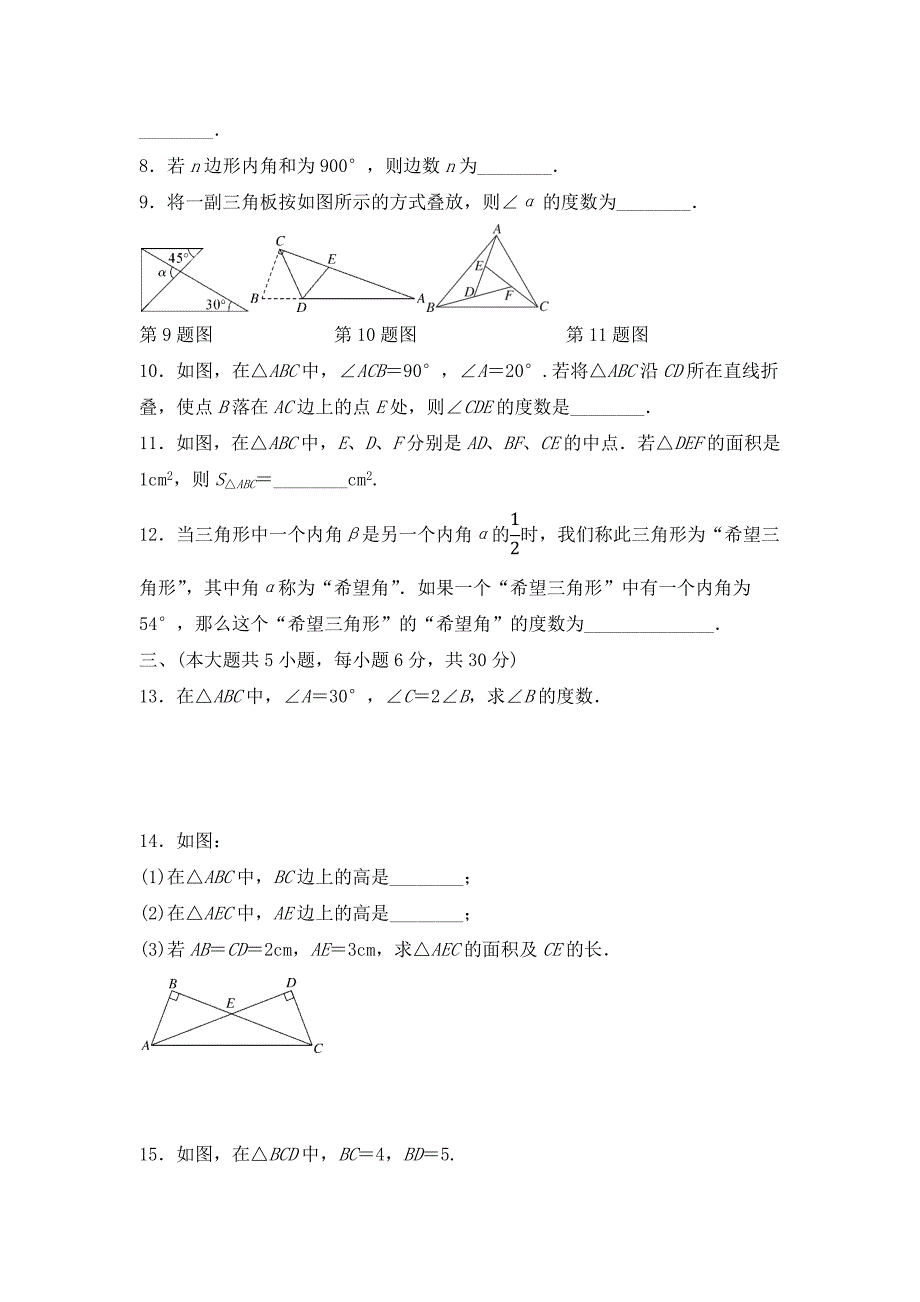 ________．
8．若n边形内角和为900°，则边数n为________．
9．将一副三角板按如图所示的方式叠放，则∠α的度数为________．
45° α 30°
C E B D A
A E D F B C
第9题图 第10题图 第11题图
10．如图，在△ABC中，∠ACB＝90°，∠A＝20°.若将△ABC沿CD所在直线折
叠，使点B落在AC边上的点E处，则∠CDE的度数是________．
11．如图，在△ABC中，E、D、F分别是AD、BF、CE的中点．若△DEF的面积是
1cm²，则S△ABC＝________cm².
12．当三角形中一个内角β是另一个内角α的1/2时，我们称此三角形为“希望三
角形”，其中角α称为“希望角”．如果一个“希望三角形”中有一个内角为
54°，那么这个“希望三角形”的“希望角”的度数为______________．
三、(本大题共5小题，每小题6分，共30分)
13．在△ABC中，∠A＝30°，∠C＝2∠B，求∠B的度数．
14．如图：
(1)在△ABC中，BC边上的高是________；
(2)在△AEC中，AE边上的高是________；
(3)若AB＝CD＝2cm，AE＝3cm，求△AEC的面积及CE的长．
B D E A C
15．如图，在△BCD中，BC＝4，BD＝5.